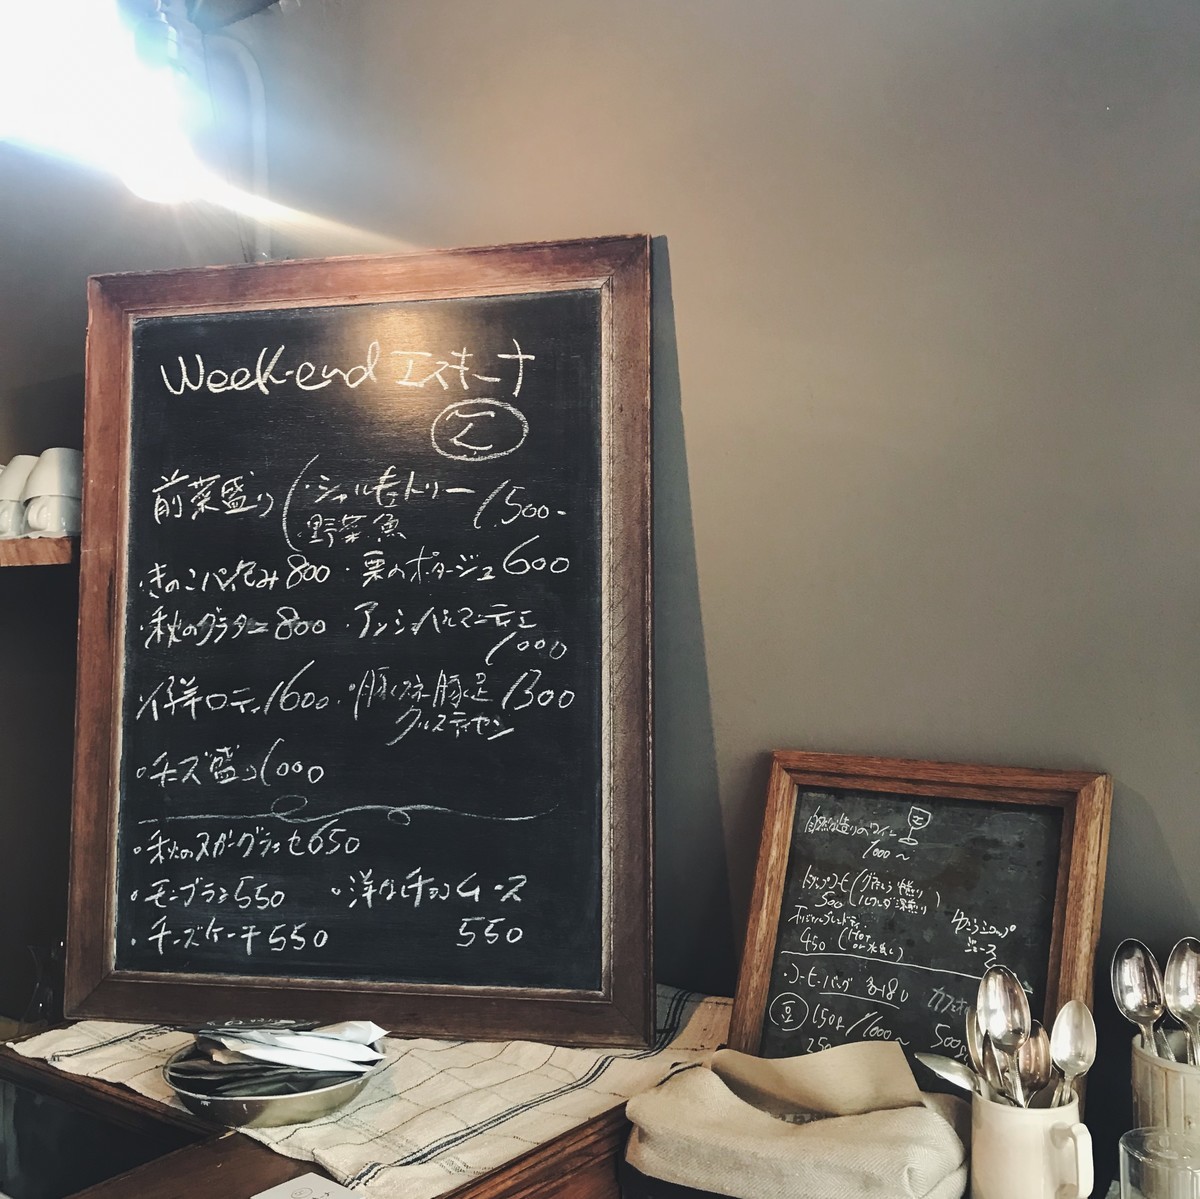 Week-end エスキーナ
前菜盛り(・シャルキュトリー 1,500-
野菜 魚
・きのこパイ包み 800 ・栗のポタージュ 600
・秋のグラタン 800 ・アッシ パルマンティエ
1000
仔羊ロティ 1600
豚足 1300
クルスティヤン
・チーズ盛り 1000
・秋のスガーグラッセ 650
・モンブラン 550 ・洋なしチョコムース
・チーズケーキ 550 550
自然な造りのワイン
1000～
ドリップコーヒー(
500
深煎り)
オリジナルブレンドティ
450 (Hot
or 水出し)
ゆずシロップ
ジュース
・コーヒーバッグ
豆 150g/1000～
カフェオレ
500